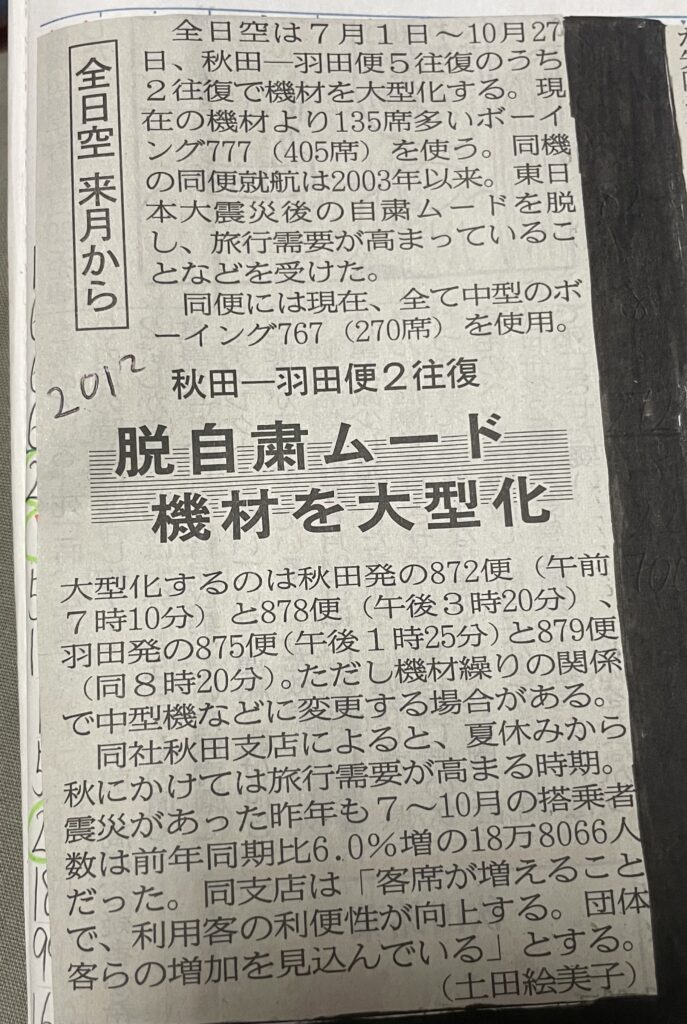 全日空 来月から
秋田―羽田便2往復
脱自粛ムード
機材を大型化
2012
全日空は7月1日~10月27
日、秋田―羽田便5往復のうち
2往復で機材を大型化する。現
在の機材より135席多いボーイ
ング777(405席)を使う。同機
の同便就航は2003年以来。東日
本大震災後の自粛ムードを脱
し、旅行需要が高まっているこ
となどを受けた。
同便には現在、全て中型のボ
ーイング767(270席)を使用。
大型化するのは秋田発の872便(午前
7時10分)と878便(午後3時20分)、
羽田発の875便(午後1時25分)と879便
(同8時20分)。ただし機材繰りの関係
で中型機などに変更する場合がある。
同社秋田支店によると、夏休みから
秋にかけては旅行需要が高まる時期。
震災があった昨年も7~10月の搭乗者
数は前年同期比6.0%増の18万8066人
だった。同支店は「客席が増えること
で、利用客の利便性が向上する。団体
客らの増加を見込んでいる」とする。
(土田絵美子)